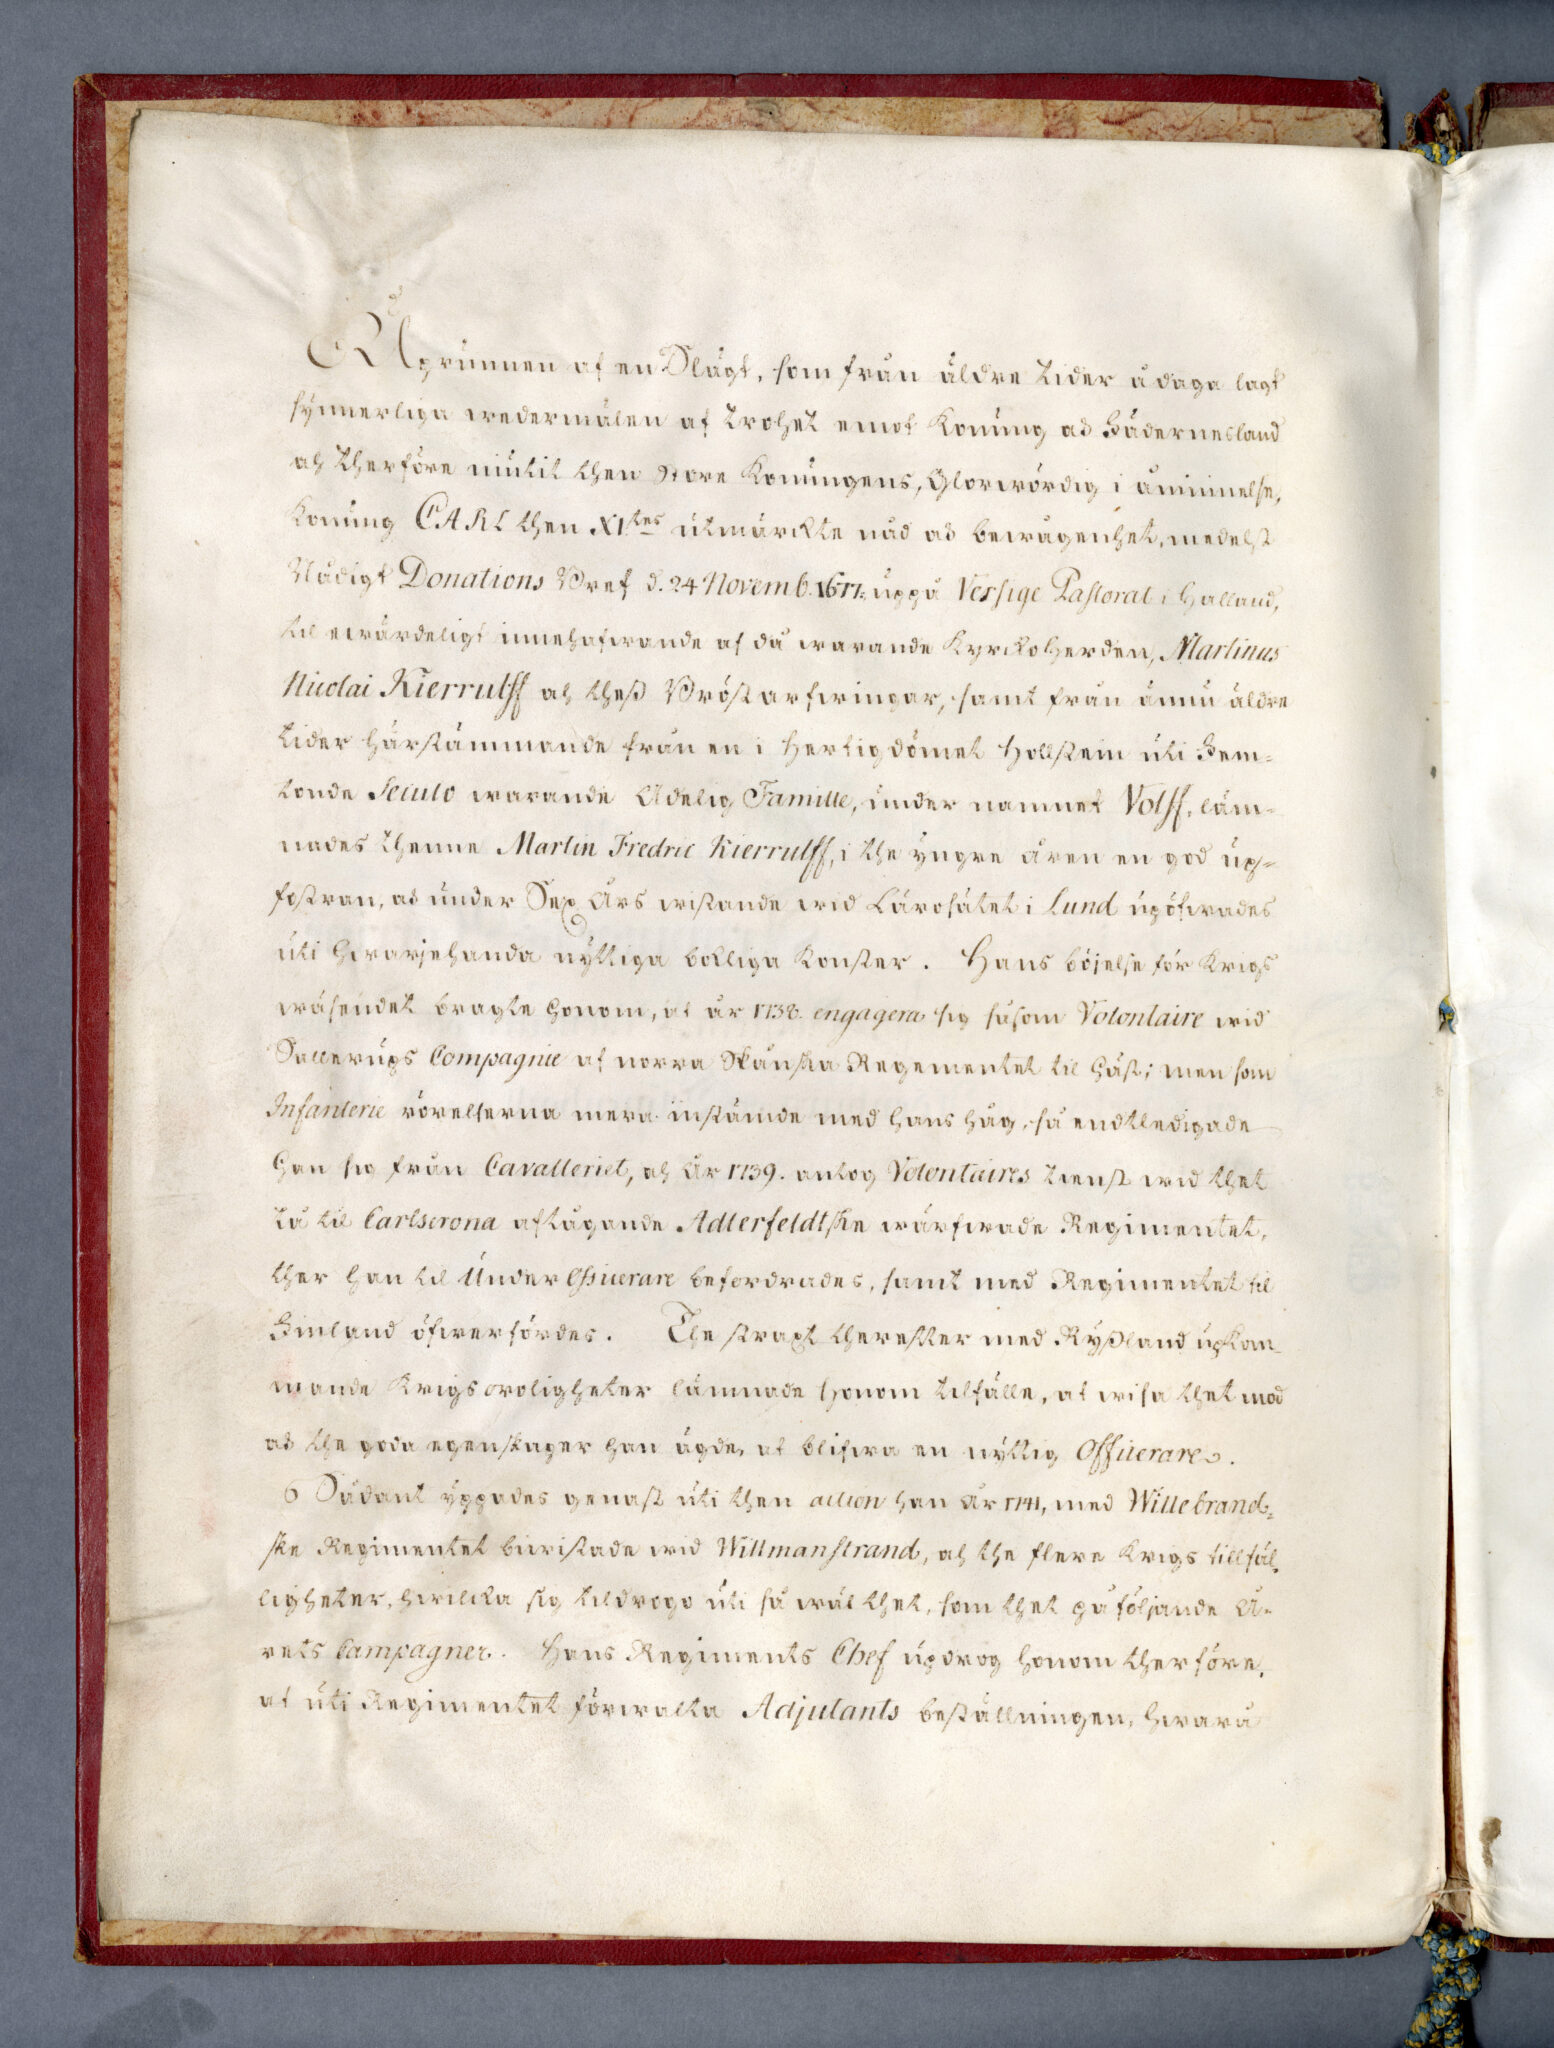 Uprunnen af en Slägt, som från äldre tider ådaga lagt
synnerliga wedermälen af trohet emot Konung och Fäderneslandet
och therföre niutit then store Konungens, Glorwördig i åminnelse,
Konung CARL then XI.tes utmärckte nåd och bewågenhet, medelst
Nådigt Donations Bref d. 24 Novemb. 1677. uppå Vessige Pastorat i Halland,
til ewärdeligt innehafwande af då warande Kyrckoherden, Martinus
Nicolai Kierrulff och thess Bröstarfwingar, samt från ännu äldre
tider härstämmande från en i Hertigdömet Hollstein uti Fem-
tonde Seculo warande Adelig Famille, under namnet Volff, läm-
nades thenne Martin Fredric Kierrulff, i the yngre åren en god up-
fostran, och under Sex Års wistande wid Lärosätet i Lund upöfwades
uti hwarjehanda nyttiga bokliga Konster. Hans böjelse för Krigs
wäsendet bragte honom, at år 1738. engagera sig såsom Volontaire wid
Sallerups Compagnie af norra Skånska Regementet til häst; men som
Infanterie rörelserna mera instämde med hans håg, så endtledigade
han sig från Cavalleriet, och År 1739. antog Volontaires tienst wid thet
tå til Carlscrona aftågande Adlerfeldtske wärfwade Regimentet,
ther han til Under Officerare befordrades, samt med Regimentet til
Finland öfwerfördes. The straxt therefter med Ryssland upkom-
mande Krigsoroligheter lämnade honom tilfälle, at wisa thet mod
och the goda egenskaper han ägde, at blifwa en nyttig Officerare.
Sådant yppades genast uti then action han År 1741, med Willebrand-
ske Regimentet biwistade wid Willmanstrand, och the flere Krigs tillfäl-
ligheter, hwilcka sig tildrogo uti så wäl thet, som thet påföljande Å-
rets Campagner. Hans Regiments Chef updrog honom therföre,
at uti Regimentet förwalta Adjutants beställningen, hwarå